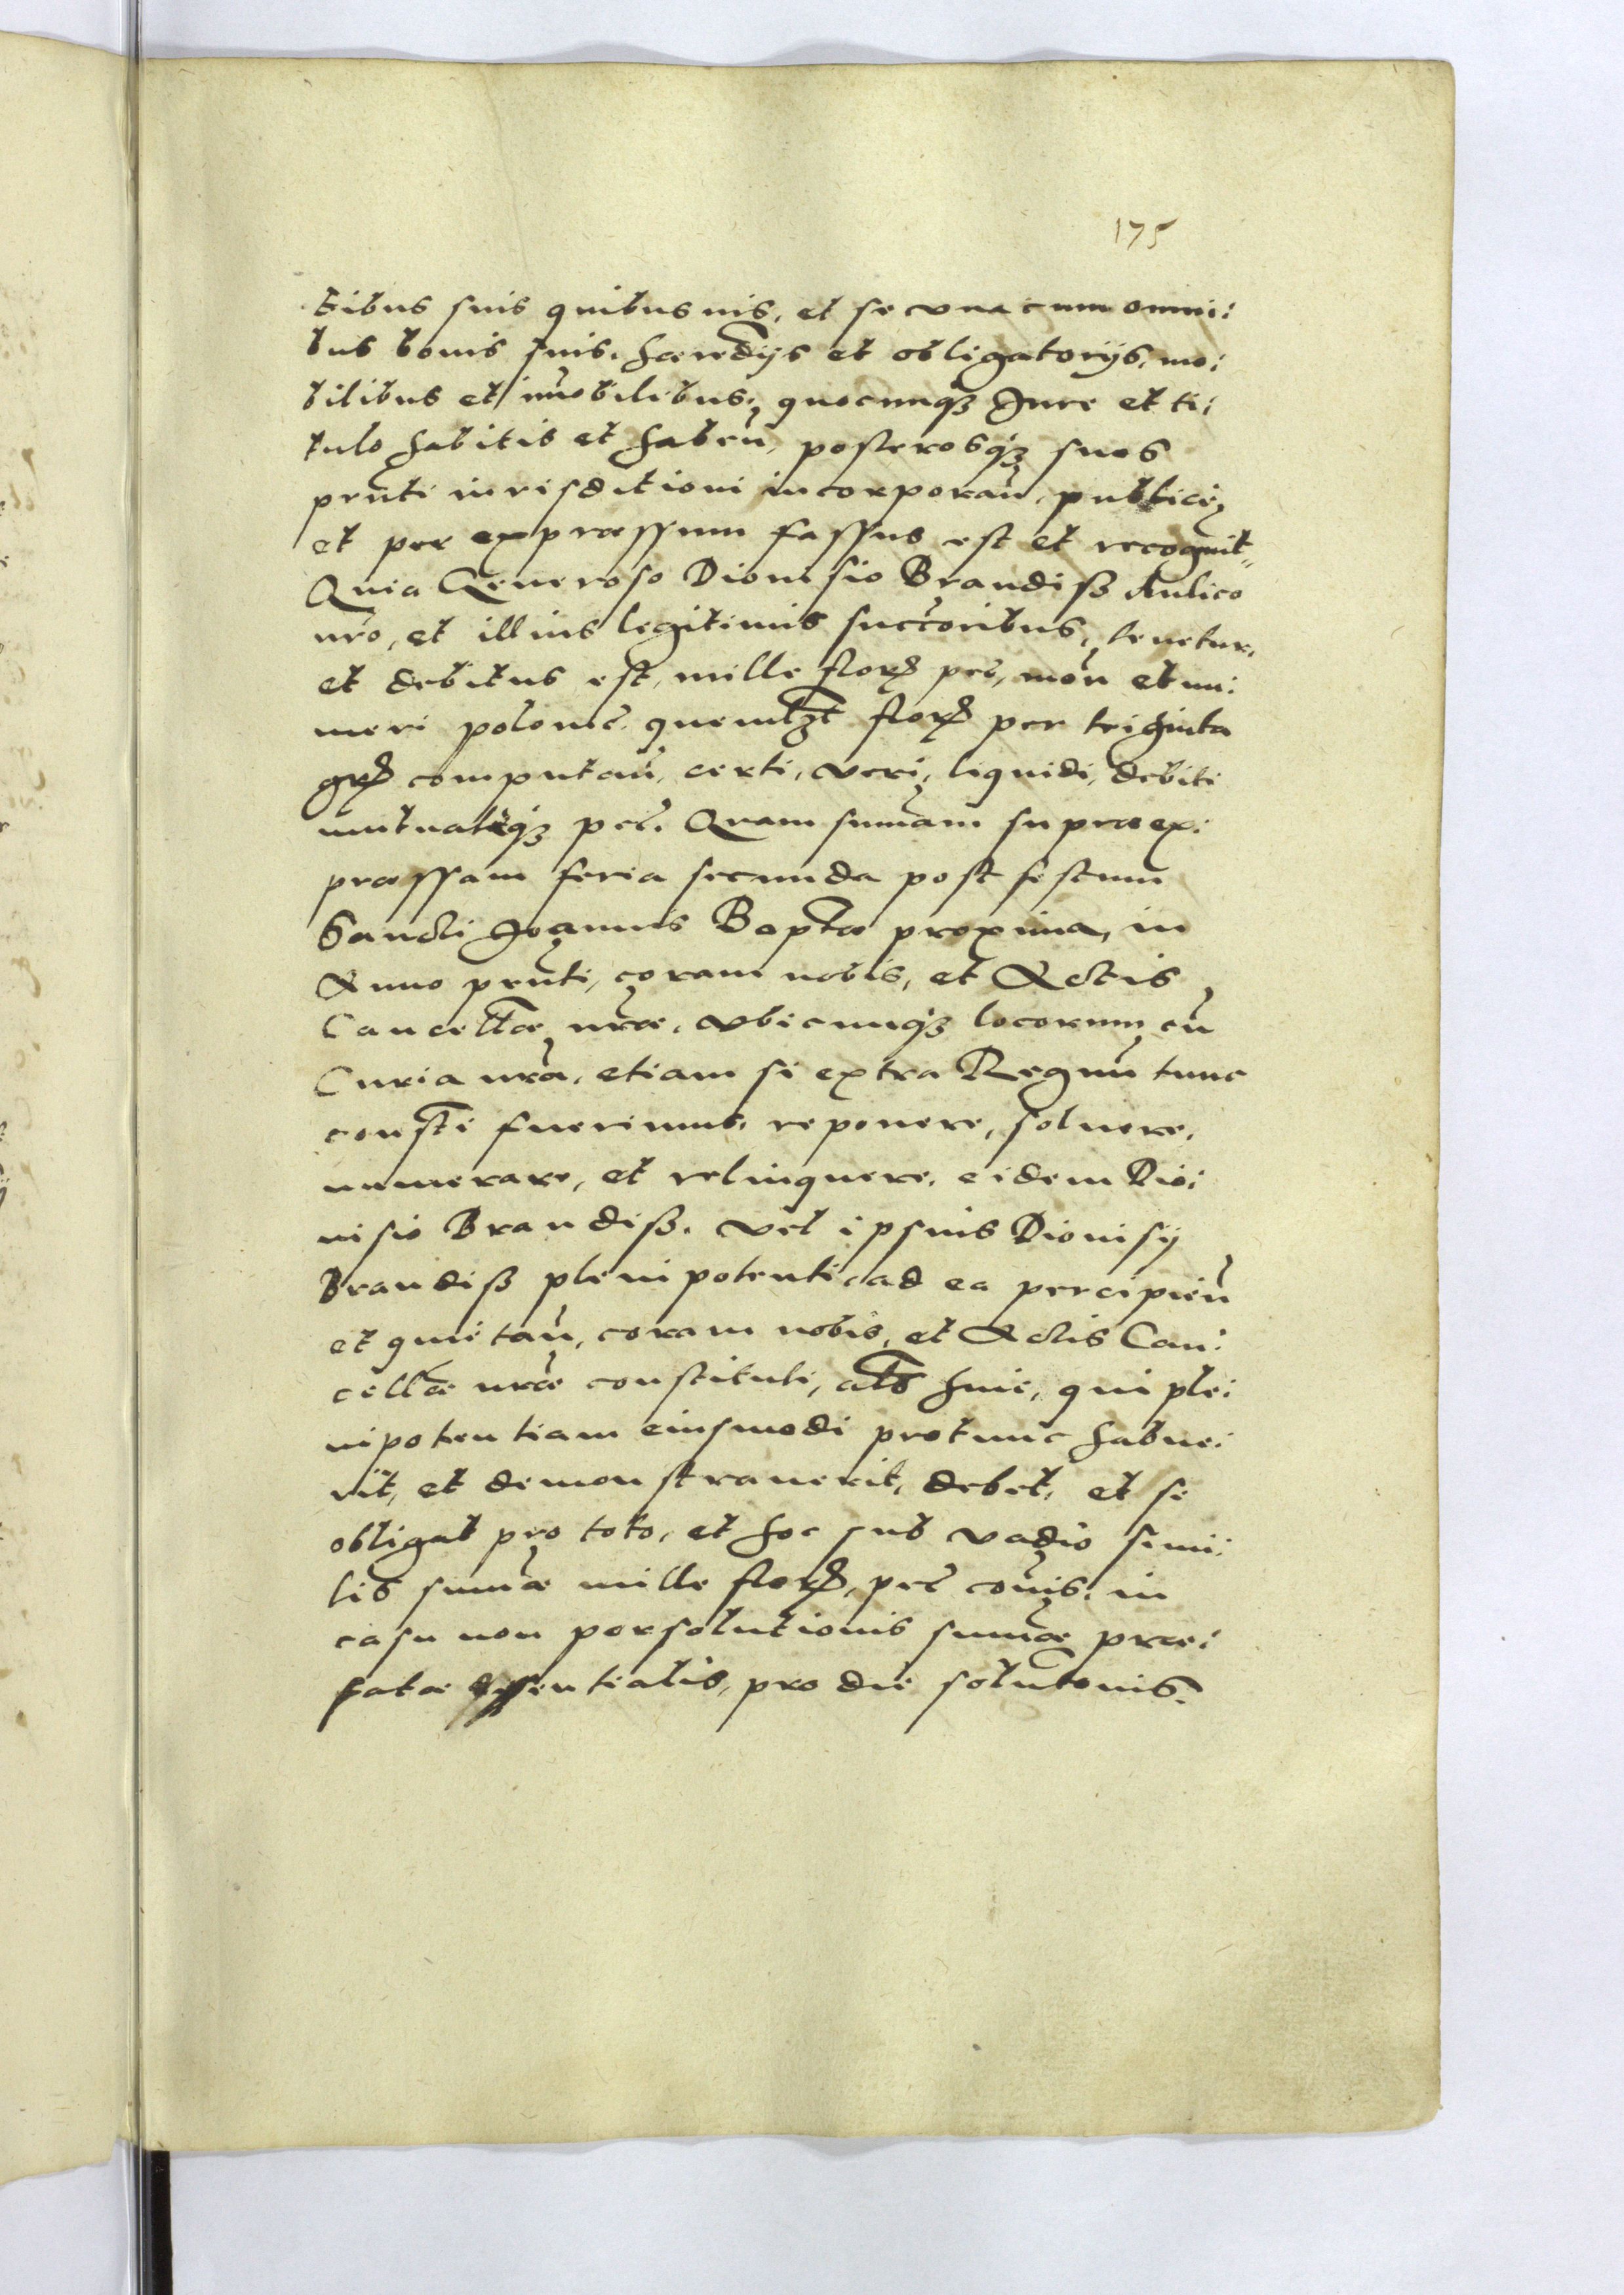 175
tibus suis quibusuis, et se vna cum omni:
bus bonis suis. haeredijs et obligatorijs, mo:
bilibus et im̄obilibus, quocunqꝫ Jure et ti:
tulo habitis et haben̄, posterosqꝫ suos
prn̄ti iurisditioni incorporan̄, publice,
et per expraessum fassus est et recognit„
Quia Generoso Dionisio Brandiß Aulico
nr̄o, et illius legitimis succ̄oribus, tenetur,
et debitus est, mille florꝭ pec̄, mon̄ et nu:
meri polonic̄. quemlꝫt florꝭ per triginta
grꝭ computan̄, certi, veri, liquidi, debiti
mutuatiqꝫ pec̄. Quam sum̄am supra ex:
praessam feria secunda post festum
Sancti Joannis Bapt̄ae proxima, in
Anno prn̄ti, coram nobis, et Actis
Cancell̄ae nr̄ae. vbicunqꝫ locorum cū
Curia nr̄a, etiam si extra Regnū tunc
const̄i fuerimus. reponere, soluere,
numerare, et relinquere. eidem Dio:
nisio Brandiß. vel ipsius Dionisij
Brandiß plenipotenti ad ea percipien̄
et quietan̄, coram nobis, et Actis Can:
cell̄ae nr̄ae constituti, al̄s huic, qui ple:
nipotentiam eiusmodi protunc habue:
rit, et demonstrauerit, debet, et se
obligat pro toto, et hoc sub vadio simi:
lis sum̄ae mille florꝭ, pec̄ com̄is. in
casu non persolutionis sum̄ae prae:
fatae essentialis, pro die solut̄onis.